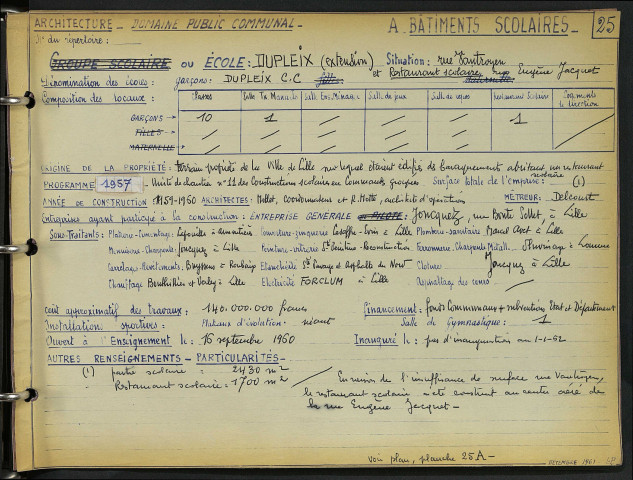 ARCHITECTURE - DOMAINE PUBLIC COMMUNAL - A - BÂTIMENTS SCOLAIRES - 25
N° du répertoire :
GROUPE SCOLAIRE ou ÉCOLE : DUPLEIX (extention) Situation : rue Vantroyen
et Restaurant scolaire rue Eugène Jacquet
Dénomination des écoles : garçons : DUPLEIX C.C filles :
Composition des locaux : Classes Salle Tx Manuels Salle Ens. Ménager Salle de jeux Salle de repos Restaurant Scolaire Logements de Direction
GARÇONS → 10 1 1
FILLES →
MATERNELLE →
ORIGINE DE LA PROPRIÉTÉ : terrain propriété de la Ville de Lille sur lequel étaient édifiés des baraquements abritant un restaurant scolaire
PROGRAMME 1957 - Unité de chantier n° 11 des Constructions scolaires en Commandes groupées - Surface totale de l'Emprise : (1)
ANNÉE DE CONSTRUCTION 1959-1960 ARCHITECTES : Mollet, Coordonnateur et R. Motte, architecte d'opération MÉTREUR : Delcourt
Entreprises ayant participé à la construction : ENTREPRISE GENERALE : Joncquez, rue Bonte Pollet, à Lille
Sous-Traitants : Plomberie - Sanitaire : à Lille
Menuiserie - Charpente : Joncquez à Lille Peinture - vitrerie : Reconstruction Ferronnerie - Charpente Métall. :
Carrelages - Revêtements : à Roubaix Etanchéité : Sté Pavage et Asphalte du Nord Cloture : Joncquez à Lille
Chauffage à Lille Electricité FORCLUM à Lille Asphaltage des cours :
Coût approximatif des travaux : 140.000.000 francs Financement : fonds Communaux + subventions Etat et Département
Installations sportives : Plateaux d'évolution : néant Salle de gymnastique : 1
Ouvert à l'Enseignement le : 16 septembre 1960 Inauguré le : pas d'inauguration au 1-1-62
AUTRES RENSEIGNEMENTS - PARTICULARITÉS -
(1) partie scolaire = 2430 m²
Restaurant scolaire = 1700 m²
En raison de l'insuffisance de surface rue Vantroyen,
le restaurant scolaire a été construit au centre aéré de
la rue Eugène Jacquet -
Voir plan, planche 25A -
DÉCEMBRE 1961